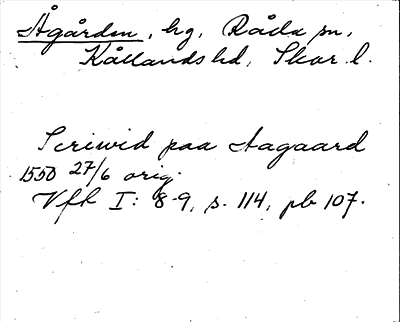 Ågården, hg, Råda sn,
Kållands hd, Skar. l.
Scriwid paa Aagaard
1550 27/6 orig.
Vfh I: 8-9, s. 114, pb 107.